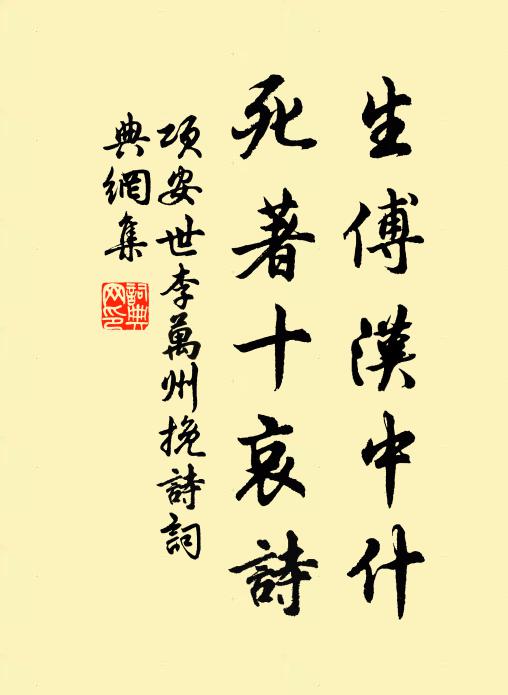 生傅漢中什
死著十哀詩
項安世李萬州挽詩詞
典網集
詞典
网印